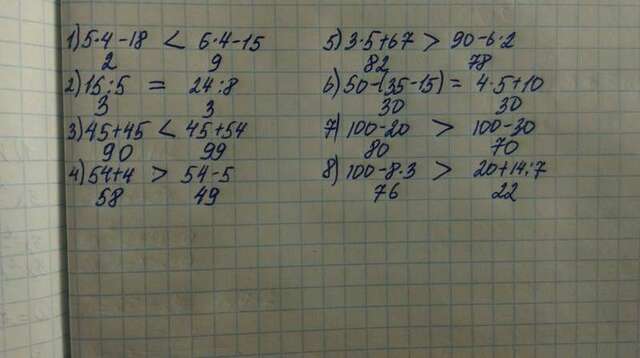 1) 5·4-18 < 6·4-15
2 9
2) 15:5 = 24:8
3 3
3) 45+45 < 45+54
90 99
4) 54+4 > 54-5
58 49
5) 3·5+67 > 90-6·2
82 78
6) 50-(35-15) = 4·5+10
30 30
7) 100-20 > 100-30
80 70
8) 100-8·3 > 20+14:7
76 22